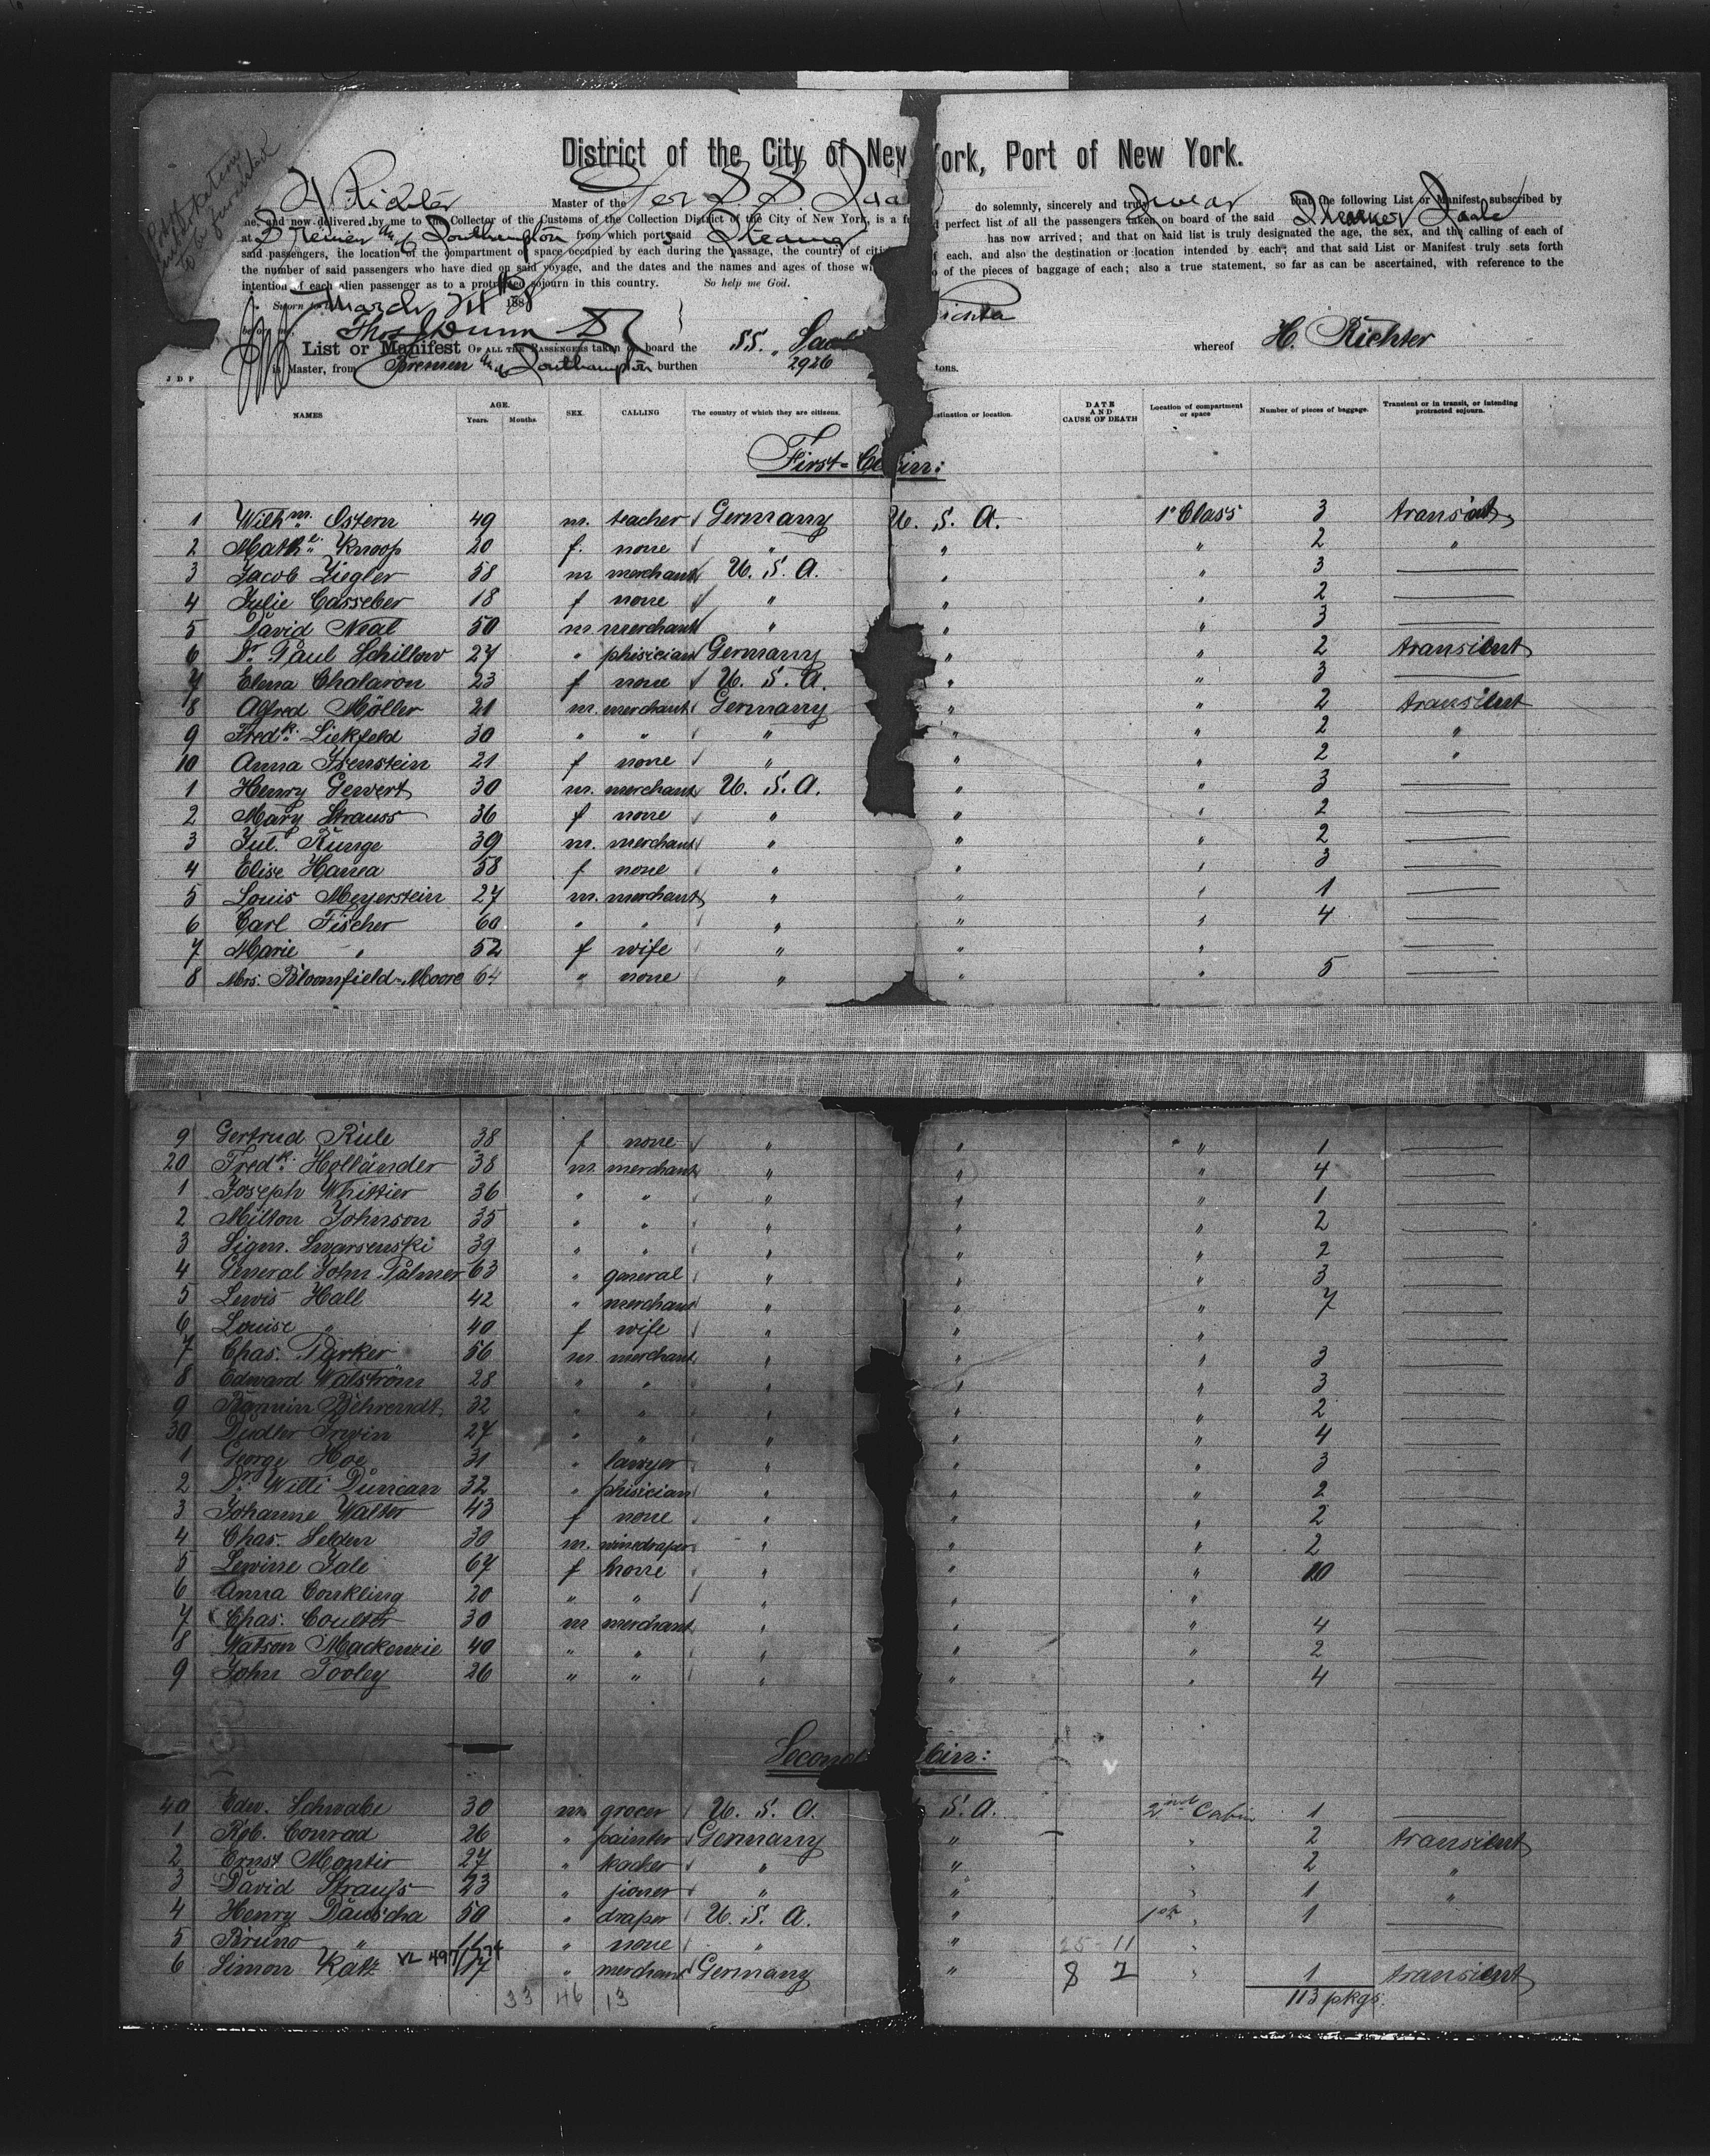 District of the City of New York, Port of New York.
H Richter Master of the Ger S S Saale do solemnly, sincerely and truly swear that the following List or Manifest subscribed by
me, and now delivered by me to the Collector of the Customs of the Collection District of the City of New York, is a f perfect list of all the passengers taken on board of the said Steamer Saale
at Bremen and Southampton from which port said Steamer has now arrived; and that on said list is truly designated the age, the sex, and the calling of each of
said passengers, the location of the compartment or space occupied by each during the passage, the country of citi f each, and also the destination or location intended by each; and that said List or Manifest truly sets forth
the number of said passengers who have died on said voyage, and the dates and the names and ages of those w o of the pieces of baggage of each; also a true statement, so far as can be ascertained, with reference to the
intention of each alien passenger as to a protracted sojourn in this country. So help me God.
Sworn to March 188
before me, Thos Dunn
List or Manifest OF ALL THE PASSENGERS taken on board the SS. Saale whereof H. Richter
is Master, from Bremen and Southampton burthen 2926 tons.
J D P
NAMES AGE. Years. Months. SEX. CALLING The country of which they are citizens. estination or location. DATE AND CAUSE OF DEATH Location of compartment or space Number of pieces of baggage. Transient or in transit, or intending protracted sojourn.
First-Cabin:
1 Wilhm. Ostern 49 m. teacher Germany U. S. A. 1st Class 3 transient
2 Mathe. Knoop 20 f. none " " " 2 "
3 Jacob Ziegler 58 m merchant U. S. A. " " 3
4 Julie Casseber 18 f none " " " 2
5 David Neal 50 m. merchant " " " 3
6 Dr. Paul Schillow 27 " phisician Germany " " 2 transient
7 Elena Chalaron 23 f none U. S. A. " " 3
8 Alfred Möller 21 m. merchant Germany " " 2 transient
9 Fredk. Liekfeld 30 " " " " " 2 "
10 Anna Isenstein 21 f none " " " 2 "
1 Henry Gewert 30 m. merchant U. S. A. " " 3
2 Mary Strauss 36 f none " " " 2
3 Jul. Runge 39 m. merchant " " " 2
4 Elise Hanea 58 f none " " " 3
5 Louis Meyerstein 27 m. merchant " " " 1
6 Carl Fischer 60 " " " " " 4
7 Marie " 52 f wife " " "
8 Mrs. Bloomfield-Moore 64 " none " " " 5
9 Gertrud Rule 38 f none " " " 1
20 Fredk. Holländer 38 m. merchant " " " 4
1 Joseph Whittier 36 " " " " " 1
2 Milton Johnson 35 " " " " " 2
3 Sigm. Swarsenski 39 " " " " " 2
4 General John Palmer 63 " general " " " 3
5 Lewis Hall 42 " merchant " " " 7
6 Louise " 40 f wife " " "
7 Chas. Parker 56 m. merchant " " " 3
8 Edward Walström 28 " " " " " 3
9 Behrendt 32 " " " " " 2
30 Dudler Irwin 27 " " " " " 4
1 George Hoe 31 " lawyer " " " 3
2 Dr. Willi Duncan 32 " phisician " " " 2
3 Johanne Walter 43 f none " " " 2
4 Chas. Selden 30 m. winedraper " " " 2
5 Lewine Jale 67 f none " " " 10
6 Anna Conkling 20 " " " " "
7 Chas. Coulter 30 m merchant " " " 4
8 Watson Mackenzie 40 " " " " " 2
9 John Tooley 26 " " " " " 4
Second Cabin:
40 Edw. Schwabe 30 m grocer U. S. A. S. A. 2nd Cabin 1
1 Rob. Conrad 26 " painter Germany " " 2 transient
2 Ernst Montir 27 " teacher " " " 2 "
3 David Strauss 23 " joiner " " " 1 "
4 Henry Dauscha 50 " draper U. S. A. " 1st " 1
5 Bruno " 11 " none " " 25-11 "
6 Simon Katz 17 " merchant Germany " 8 2 " 1 transient
33 46 13 113 pkgs.